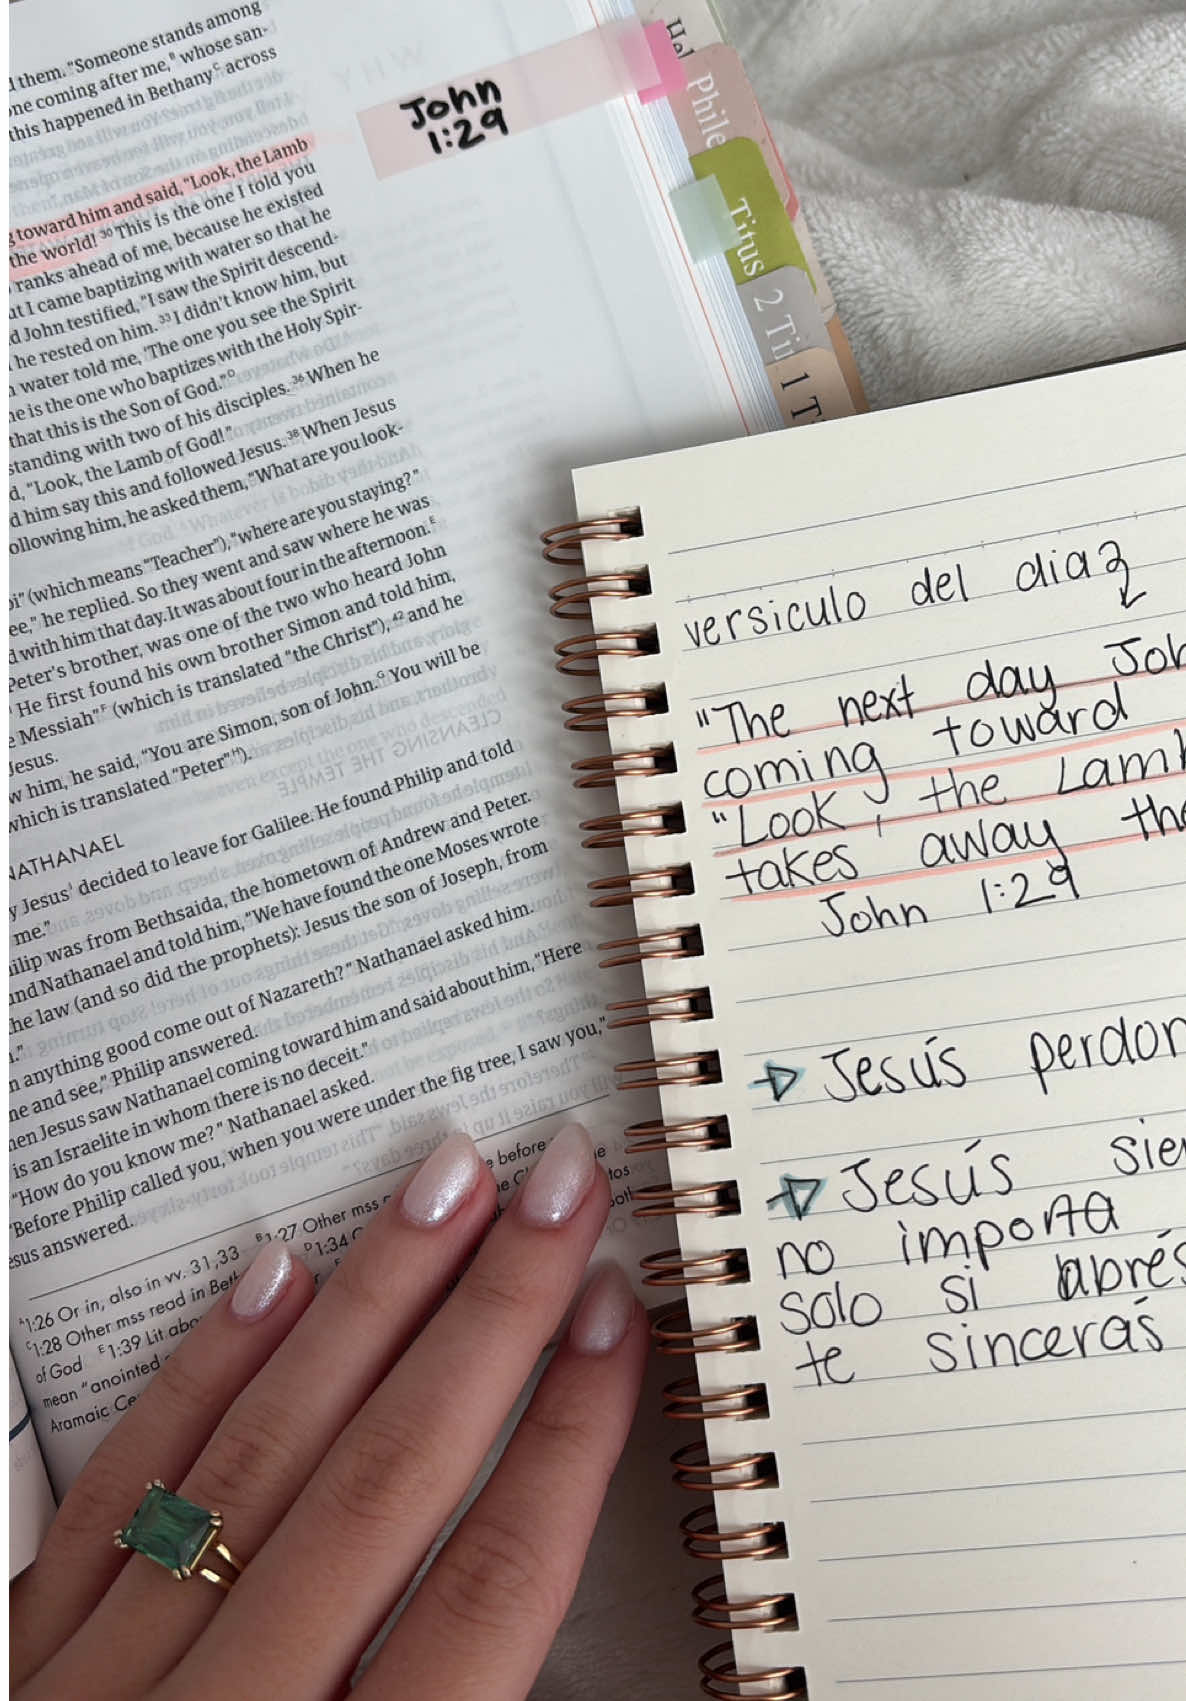 them. "Someone stands among
one coming after me,ᴮ whose san-
this happened in Bethanyᶜ across
toward him and said, "Look, the Lamb
the world! ³⁰ This is the one I told you
ranks ahead of me, because he existed
I came baptizing with water so that he
John testified, "I saw the Spirit descend-
he rested on him. ³³ I didn't know him, but
water told me, 'The one you see the Spirit
he is the one who baptizes with the Holy Spir-
that this is the Son of God."ᴰ
standing with two of his disciples. ³⁶ When he
"Look, the Lamb of God!"
him say this and followed Jesus. ³⁸ When Jesus
following him, he asked them, "What are you look-
(which means "Teacher"), "where are you staying?"
he replied. So they went and saw where he was
with him that day. It was about four in the afternoon.ᴱ
Peter's brother, was one of the two who heard John
He first found his own brother Simon and told him,
Messiah"ꟳ (which is translated "the Christ"), ⁴² and he
Jesus.
him, he said, "You are Simon, son of John.ᴳ You will be
which is translated "Peter"ᴴ).
NATHANAEL
Jesusᴵ decided to leave for Galilee. He found Philip and told
me."
Philip was from Bethsaida, the hometown of Andrew and Peter.
Nathanael and told him, "We have found the one Moses wrote
the law (and so did the prophets): Jesus the son of Joseph, from
anything good come out of Nazareth?" Nathanael asked him.
and see," Philip answered.
Jesus saw Nathanael coming toward him and said about him, "Here
is an Israelite in whom there is no deceit."
"How do you know me?" Nathanael asked.
"Before Philip called you, when you were under the fig tree, I saw you,"
Jesus answered.
ᴬ1:26 Or in, also in vv. 31,33 ᴮ1:27 Other mss before
ᶜ1:28 Other mss read in ᴰ1:34
of God ᴱ1:39 Lit
mean "anointed
Aramaic
John
1:29
Phile
Titus
2 Ti
1 T
versiculo del dia
"The next day
coming toward
"Look, the Lamb
takes away the
John 1:29
Jesús
Jesús
no importa
solo si abrés
te sincerás